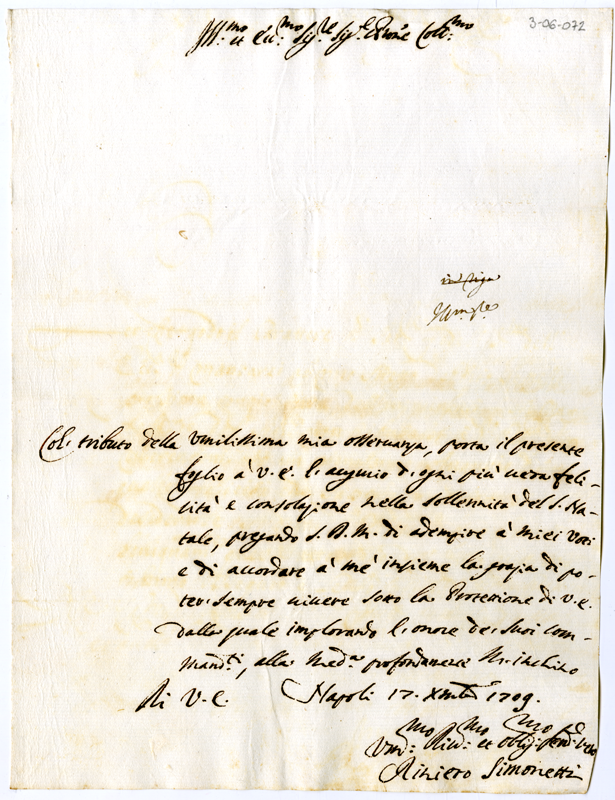 3-06-072
Ill:mo et Ecc:mo Sig:re Sig:re Prone Coll:mo
Col tributo della umilissima mia osseruanza, porta il presente
foglio à V. E. l'augurio d'ogni più uera feli-
cità e consolazione nella sollennità del S. Na-
tale, pregando S. D. M. di adempire à miei voti
e di accordare à me insieme la grazia di po-
ter sempre uiuere sotto la Protezzione di V. E.
dalla quale implorando l'onore de suoi com-
mandti, alla meda profondamente m'inchino
Di V. E. Napoli 17. Xmbre 1709.
Um:mo Diu:mo et Obl:mo
Riniero Simonetti